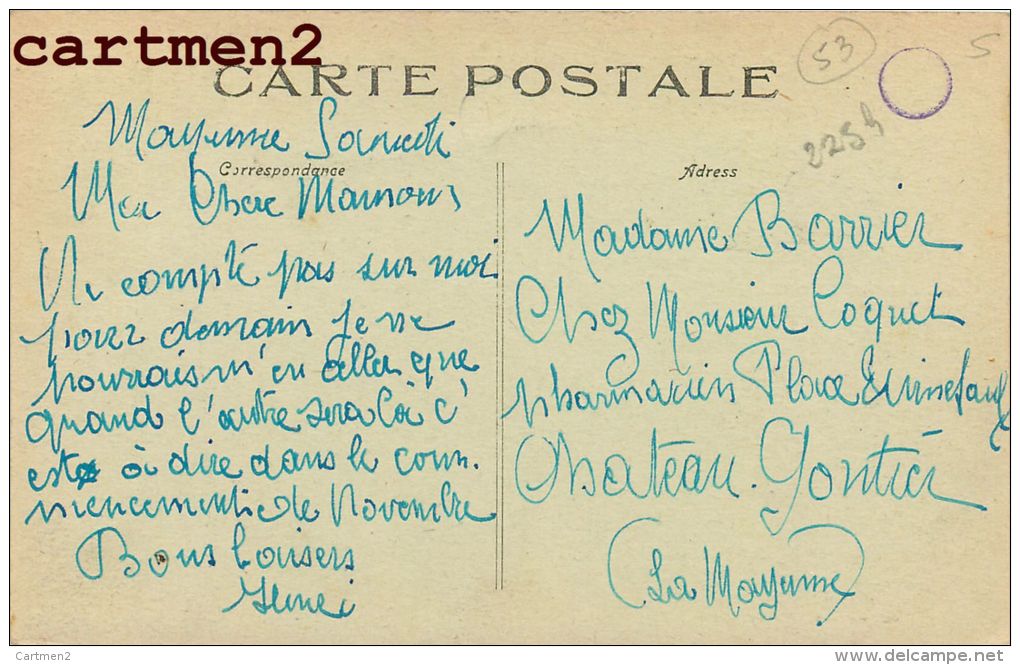 cartmen2
53
S
CARTE POSTALE
2254
Mayenne Samedi
Correspondance
Ma Chere Maman
Ne compte pas sur moi
pour demain je ne
pourrais m'en aller que
quand l'autre sera là c'
est à dire dans le com
mencement de Novembre
Bons baisers
Henri
Adress
Madame Barrier
Chez Monsieur Coquet
pharmacien Place
Chateau-Gontier
(La Mayenne)
Cartmen2
www.delcampe.net